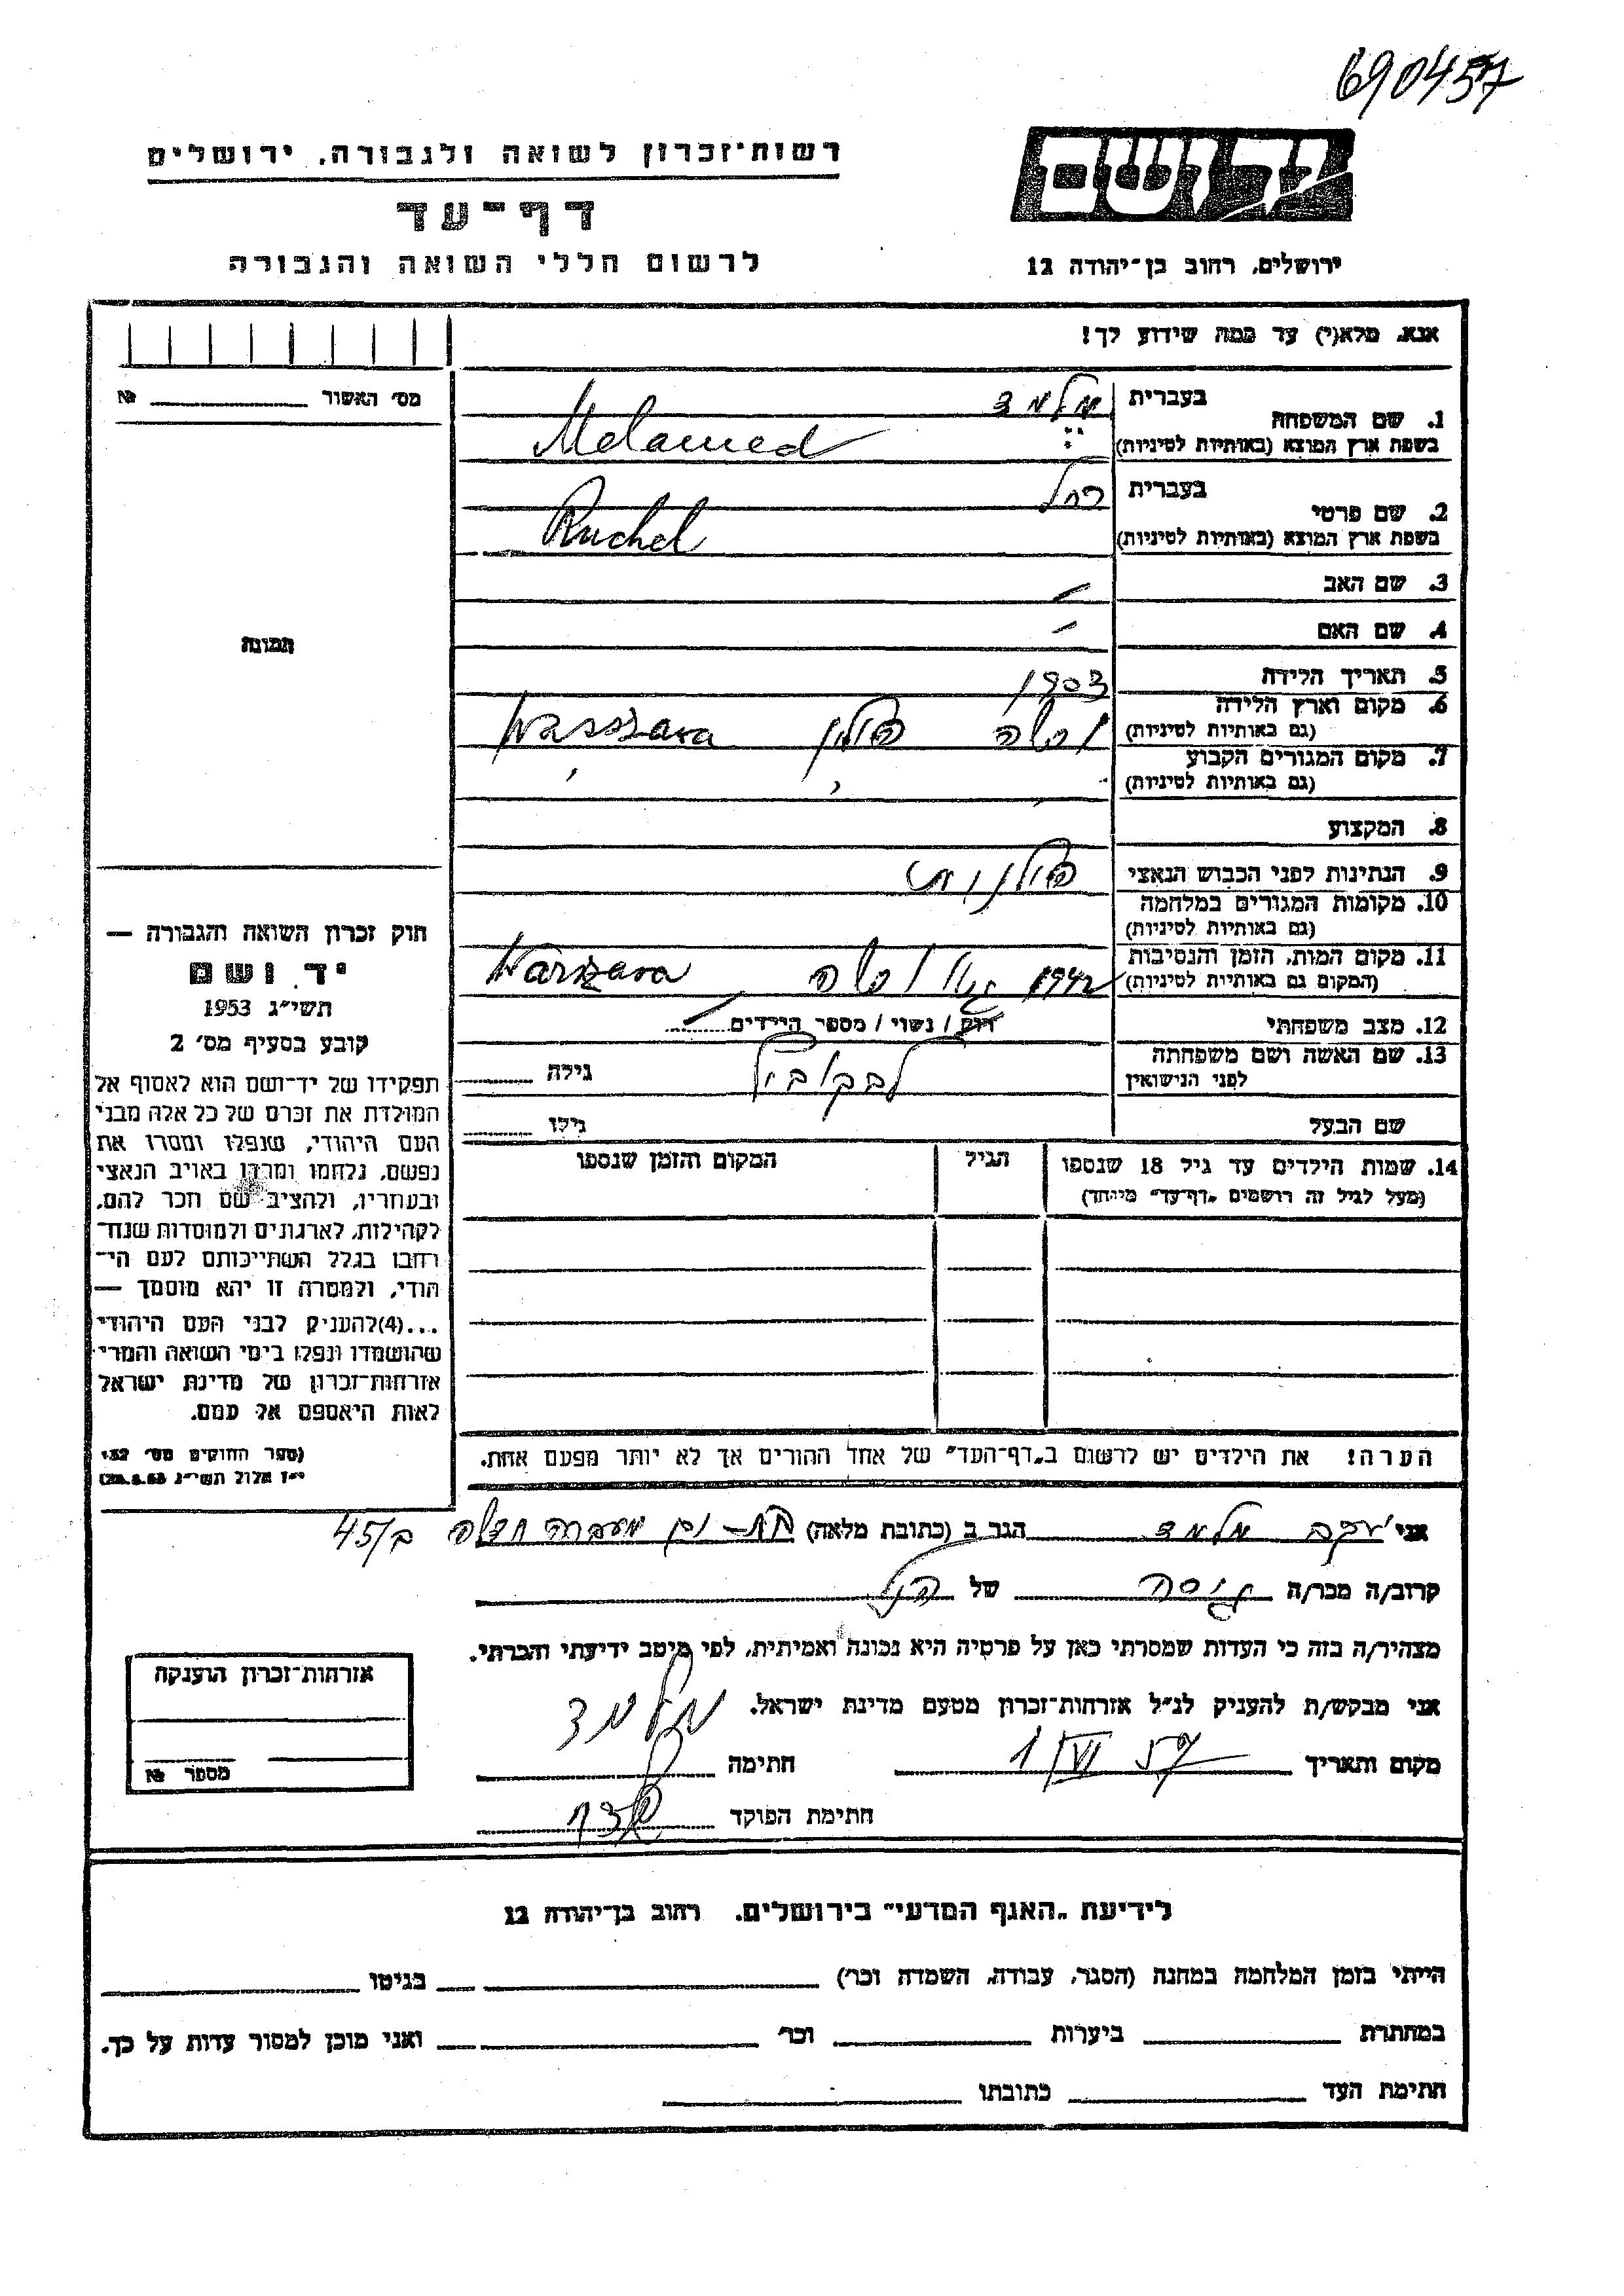 690457
יד ושם
רשות־זכרון לשואה ולגבורה, ירושלים
דף־עד
ירושלים, רחוב בן־יהודה 12
לרשום חללי השואה והגבורה
אנא, מלא(י) עד כמה שידוע לך!
מס׳ האשור №
1. שם המשפחה בעברית מלמד
בשפת ארץ המוצא (באותיות לטיניות) Melamed
2. שם פרטי בעברית רחל
בשפת ארץ המוצא (באותיות לטיניות) Ruchel
3. שם האב —
4. שם האם —
תמונה
5. תאריך הלידה 1903
6. מקום וארץ הלידה ורשה פולין Warszawa
(גם באותיות לטיניות)
7. מקום המגורים הקבוע
(גם באותיות לטיניות)
8. המקצוע
9. הנתינות לפני הכבוש הנאצי פולנית
10. מקומות המגורים במלחמה
(גם באותיות לטיניות)
11. מקום המות, הזמן והנסיבות 1942 גטו ורשה Warszawa
(המקום גם באותיות לטיניות)
12. מצב משפחתי רווק / נשוי / מספר הילדים
13. שם האשה ושם משפחתה
לפני הנישואין גילה
שם הבעל גילו
14. שמות הילדים עד גיל 18 שנספו הגיל המקום והזמן שנספו
(מעל לגיל זה רושמים „דף־עד״ מיוחד)
חוק זכרון השואה והגבורה —
יד ושם
תשי״ג 1953
קובע בסעיף מס׳ 2
תפקידו של יד־ושם הוא לאסוף אל
המולדת את זכרם של כל אלה מבני
העם היהודי, שנפלו ומסרו את
נפשם, נלחמו ומרדו באויב הנאצי
ובעוזריו, ולהציב שם וזכר להם,
לקהילות, לארגונים ולמוסדות שנח־
רחבו בגלל השתייכותם לעם הי־
הודי, ולמטרה זו יהא מוסמך —
...(4)להעניק לבני העם היהודי
שהושמדו ונפלו בימי השואה והמרי
אזרחות־זכרון של מדינת ישראל
לאות היאספם אל עמם.
(ספר החוקים מס׳ 132,
י״ז אלול תשי״ג 28.8.53)
הערה! את הילדים יש לרשום ב„דף־העד״ של אחד ההורים אך לא יותר מפעם אחת.
אני יעקב מלמד הגר ב (כתובת מלאה) בת־ים מעברה חדשה ב/45
קרוב/ה מכר/ה גיסה של הנ״ל
מצהיר/ה בזה כי העדות שמסרתי כאן על פרטיה היא נכונה ואמיתית, לפי מיטב ידיעתי והכרתי.
אני מבקש/ת להעניק לנ״ל אזרחות־זכרון מטעם מדינת ישראל.
מקום ותאריך 1/VI 57 חתימה מלמד
חתימת הפוקד
אזרחות־זכרון הוענקה
מספר №
לידיעת „האגף המדעי״ בירושלים, רחוב בן־יהודה 12
הייתי בזמן המלחמה במחנה (הסגר, עבודה, השמדה וכר׳) בגיטו
במחתרת ביערות וכר׳ ואני מוכן למסור עדות על כך.
חתימת העד כתובתו